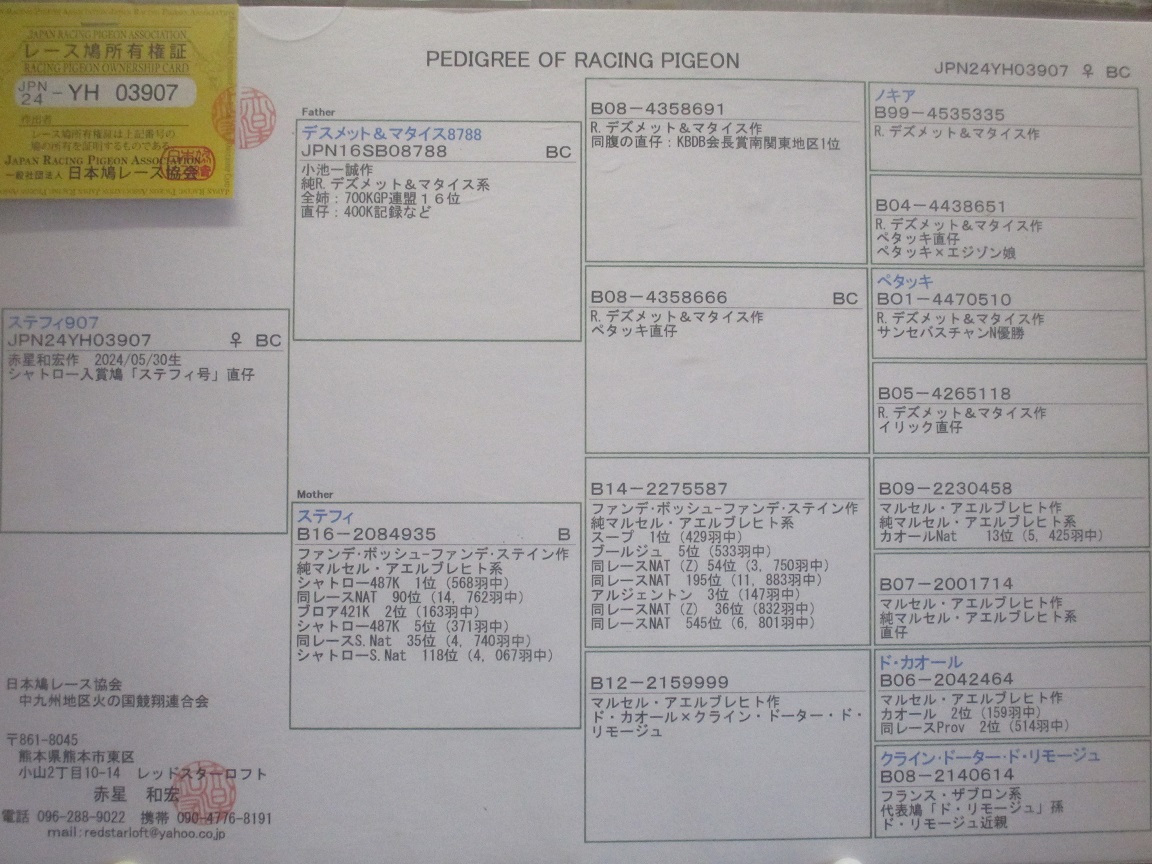 JAPAN RACING PIGEON ASSOCIATION
レース鳩所有権証
RACING PIGEON OWNERSHIP CARD
JPN
24 - YH 03907
作出者
レース鳩所有権証は上記番号の
鳩の所有を証明するものである
JAPAN RACING PIGEON ASSOCIATION
一般社団法人 日本鳩レース協会
PEDIGREE OF RACING PIGEON
JPN24YH03907 ♀ BC
ステフィ907
JPN24YH03907 ♀ BC
赤星和宏作 2024/05/30生
シャトロー入賞鳩「ステフィ号」直仔
Father
デスメット＆マタイス8788
JPN16SB08788 BC
小池一誠作
純R.デズメット＆マタイス系
全姉：700KGP連盟１６位
直仔：400K記録など
Mother
ステフィ
B16-2084935 B
ファンデ・ボッシュ-ファンデ・ステイン作
純マルセル・アエルブレヒト系
シャトロー487K 1位（568羽中）
同レースNAT 90位（14,762羽中）
ブロア421K 2位（163羽中）
シャトロー487K 5位（371羽中）
同レースS.Nat 35位（4,740羽中）
シャトローS.Nat 118位（4,067羽中）
B08-4358691
R.デズメット＆マタイス作
同腹の直仔：KBDB会長賞南関東地区1位
B08-4358666 BC
R.デズメット＆マタイス作
ペタッキ直仔
B14-2275587
ファンデ・ボッシュ-ファンデ・ステイン作
純マルセル・アエルブレヒト系
スープ 1位（429羽中）
ブールジュ 5位（533羽中）
同レースNAT（Z）54位（3,750羽中）
同レースNAT 195位（11,883羽中）
アルジェントン 3位（147羽中）
同レースNAT（Z） 36位（832羽中）
同レースNAT 545位（6,801羽中）
B12-2159999
マルセル・アエルブレヒト作
ド・カオール×クライン・ドーター・ド・
リモージュ
ノキア
B99-4535335
R.デズメット＆マタイス作
B04-4438651
R.デズメット＆マタイス作
ペタッキ直仔
ペタッキ×エジゾン娘
ペタッキ
B01-4470510
R.デズメット＆マタイス作
サンセバスチャンN優勝
B05-4265118
R.デズメット＆マタイス作
イリック直仔
B09-2230458
マルセル・アエルブレヒト作
純マルセル・アエルブレヒト系
カオールNat 13位（5,425羽中）
B07-2001714
マルセル・アエルブレヒト作
純マルセル・アエルブレヒト系
直仔
ド・カオール
B06-2042464
マルセル・アエルブレヒト作
カオール 2位（159羽中）
同レースProv 2位（514羽中）
クライン・ドーター・ド・リモージュ
B08-2140614
フランス・ザブロン系
代表鳩「ド・リモージュ」孫
ド・リモージュ近親
日本鳩レース協会
中九州地区火の国競翔連合会
〒861-8045
熊本県熊本市東区
小山2丁目10-14 レッドスターロフト
赤星 和宏
電話 096-288-9022 携帯 090-4776-8191
mail:redstarloft@yahoo.co.jp